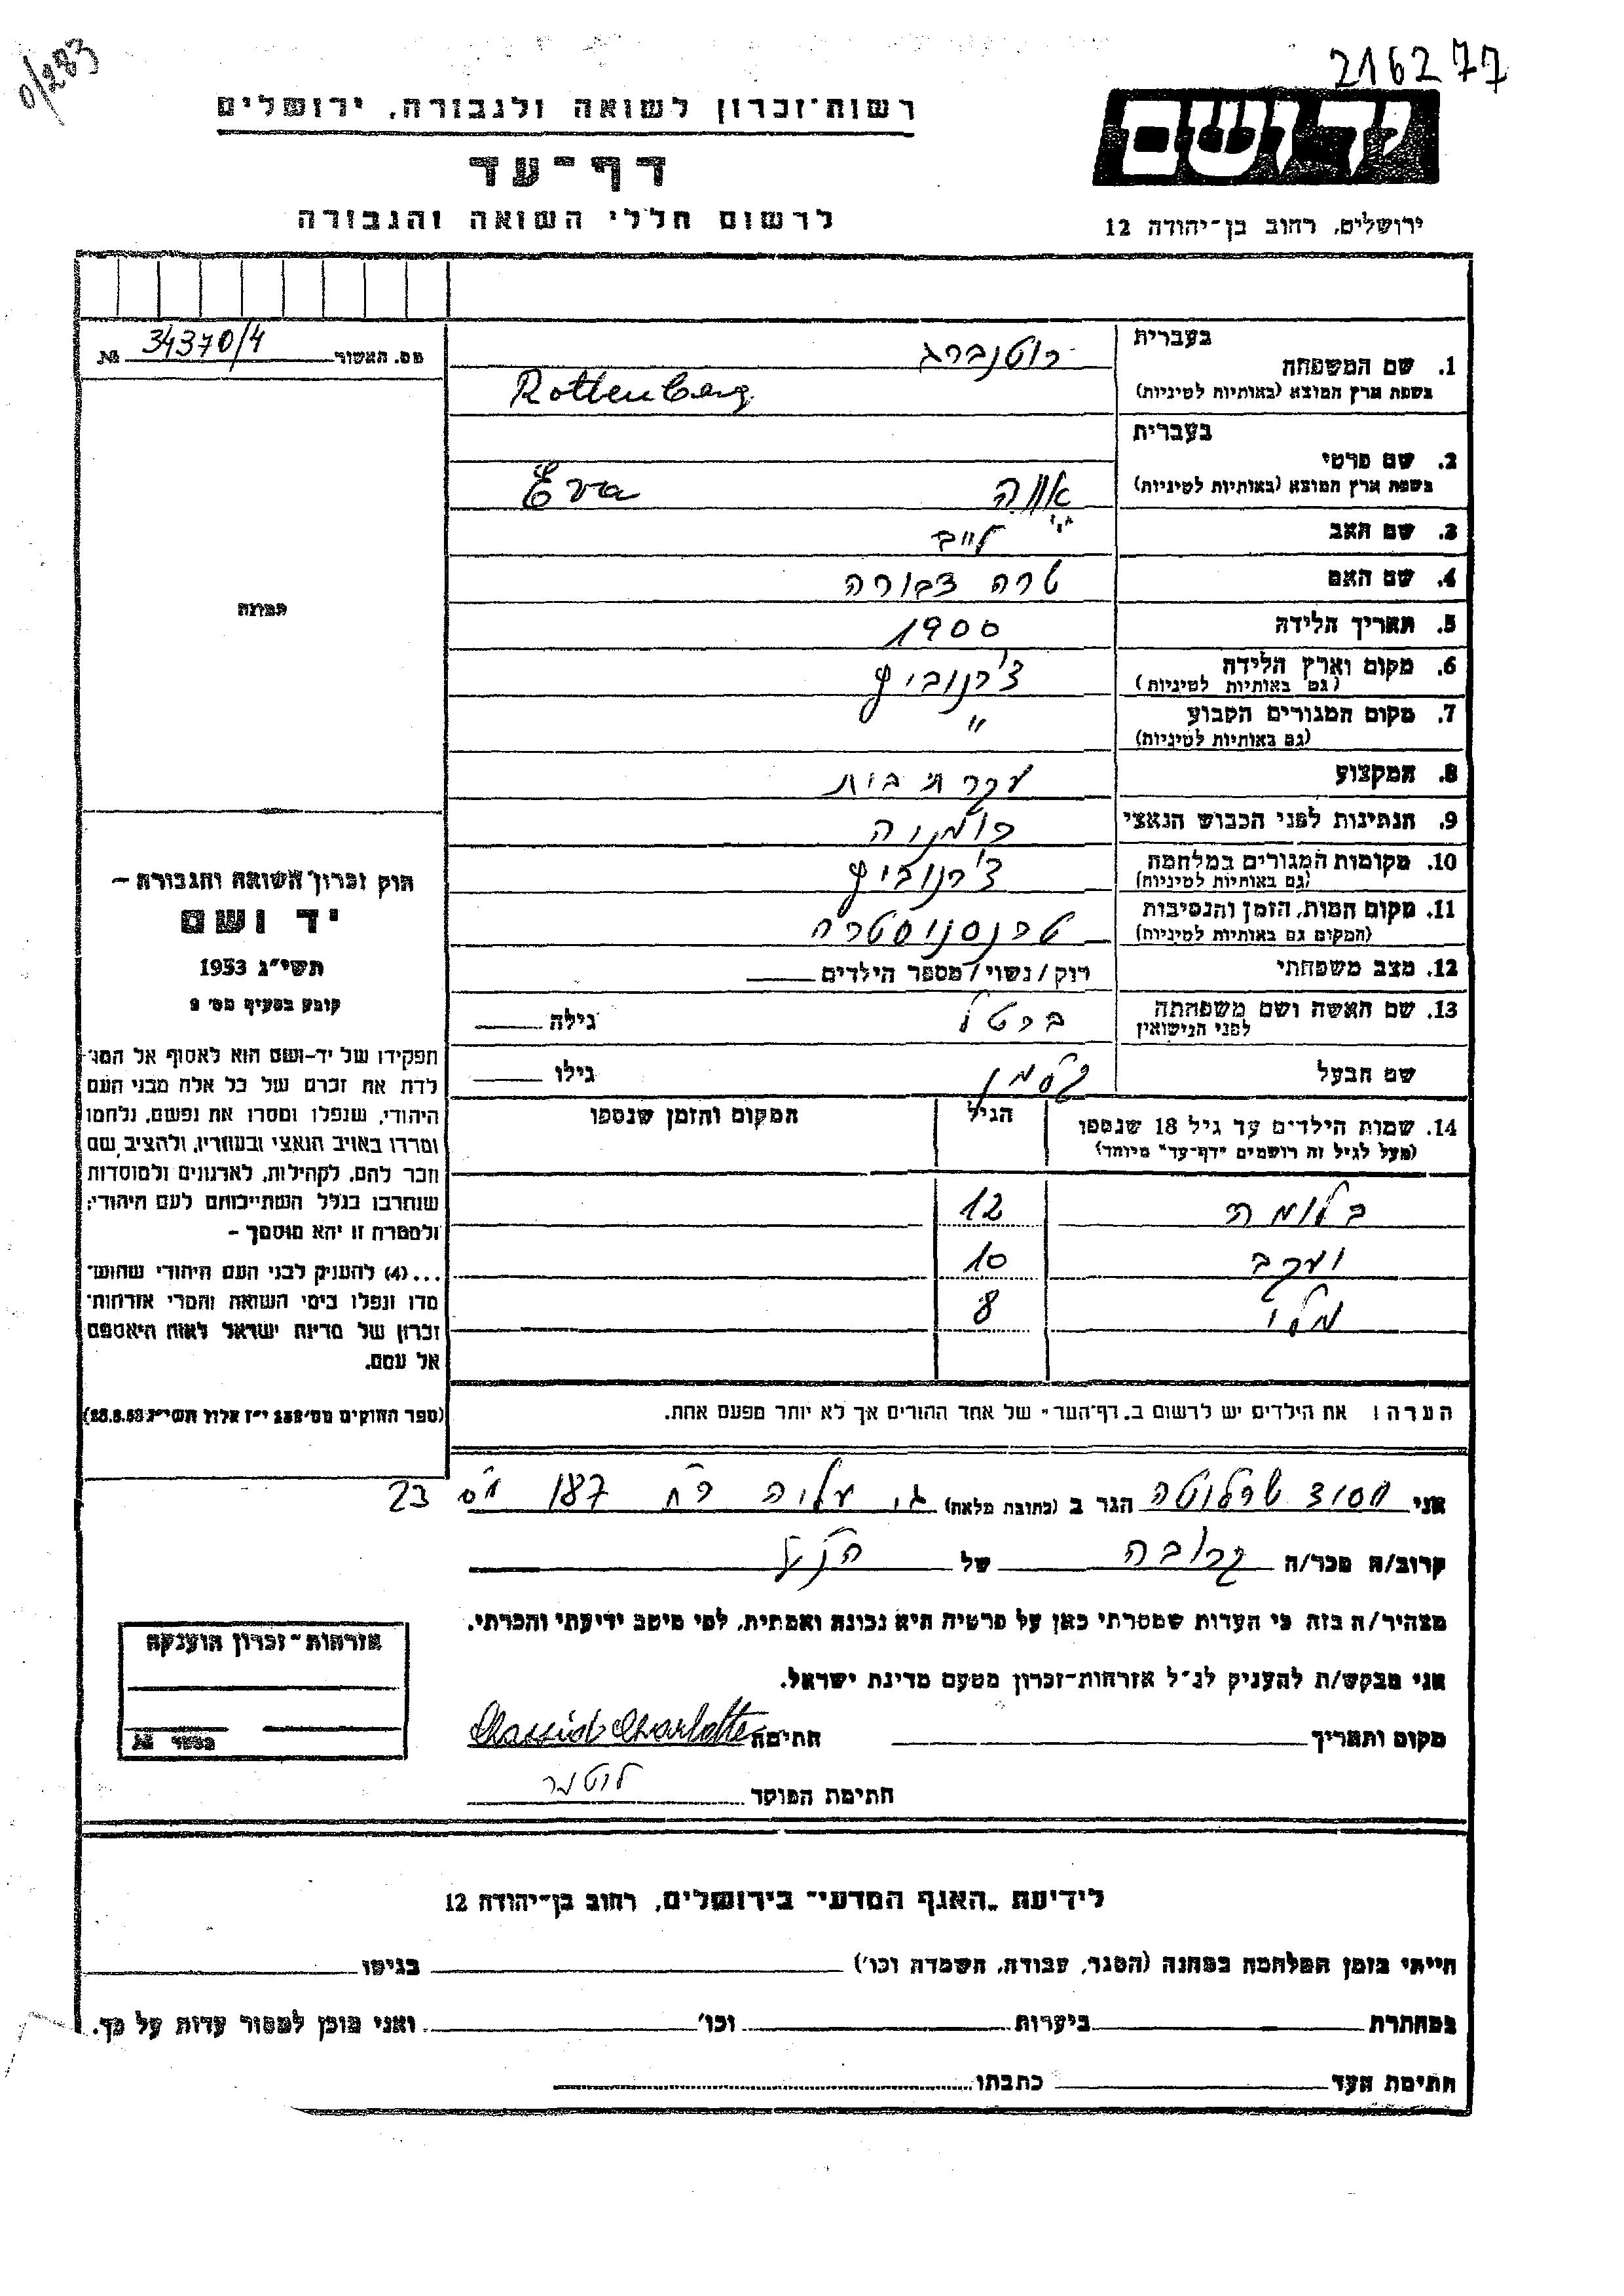 0/283
216277
רשות־זכרון לשואה ולגבורה, ירושלים
יד ושם
דף־עד
לרשום חללי השואה והגבורה
ירושלים, רחוב בן־יהודה 12
מס. האשור 34370/4 №
בעברית
1. שם המשפחה רוטנברג
בשפת ארץ המוצא (באותיות לטיניות) Rottenberg
בעברית
2. שם פרטי
בשפת ארץ המוצא (באותיות לטיניות) אווה Eva
3. שם האב לייב
4. שם האם שרה דבורה
5. תאריך הלידה 1900
6. מקום וארץ הלידה צ'רנוביץ
(גם באותיות לטיניות)
7. מקום המגורים הקבוע "
(גם באותיות לטיניות)
8. המקצוע עקרת בית
9. הנתינות לפני הכבוש הנאצי רומניה
10. מקומות המגורים במלחמה צ'רנוביץ
(גם באותיות לטיניות)
11. מקום המות, הזמן והנסיבות טרנסניסטריה
(המקום גם באותיות לטיניות)
12. מצב משפחתי רוק / נשוי / מספר הילדים
13. שם האשה ושם משפחתה גילה
לפני הנישואין
שם הבעל זלמן גילו
14. שמות הילדים עד גיל 18 שנספו הגיל המקום והזמן שנספו
(מעל לגיל זה רושמים "דף־עד" מיוחד)
בלומה 12
יעקב 10
מלי 8
הערה ! את הילדים יש לרשום ב"דף־העד" של אחד ההורים אך לא יותר מפעם אחת.
תמונה
חוק זכרון השואה והגבורה –
יד ושם
תשי"ג 1953
קובע בסעיף מס' 2
תפקידו של יד-ושם הוא לאסוף אל המו־
לדת את זכרם של כל אלה מבני העם
היהודי, שנפלו ומסרו את נפשם, נלחמו
ומרדו באויב הנאצי ובעוזריו, ולהציב שם
וזכר להם, לקהילות, לארגונים ולמוסדות
שנחרבו בגלל השתייכותם לעם היהודי;
ולמטרה זו יהא מוסמך –
...(4) להעניק לבני העם היהודי שהוש־
מדו ונפלו בימי השואה והמרי אזרחות־
זכרון של מדינת ישראל לאות היאספם
אל עמם.
(ספר החוקים מס' 132 י"ז אלול תשי"ג 28.8.53)
אני חסיד שרלוטה הגר ב (כתובת מלאה) גו עליה רח 187 מס 23
קרוב/ה מכר/ה קרובה של הנ"ל
מצהיר/ה בזה כי העדות שמסרתי כאן על פרטיה היא נכונה ואמתית, לפי מיטב ידיעתי והכרתי.
אני מבקש/ת להעניק לנ"ל אזרחות-זכרון מטעם מדינת ישראל.
מקום ותאריך חתימה Chassid Charlotte
חתימת הפוקד
אזרחות-זכרון הוענקה
№
לידיעת "האגף המדעי" בירושלים, רחוב בן־יהודה 12
הייתי בזמן המלחמה במחנה (הסגר, עבודה, השמדה וכו') בגיטו
במחתרת ביערות וכו' ואני מוכן למסור עדות על כך.
חתימת העד כתבתו